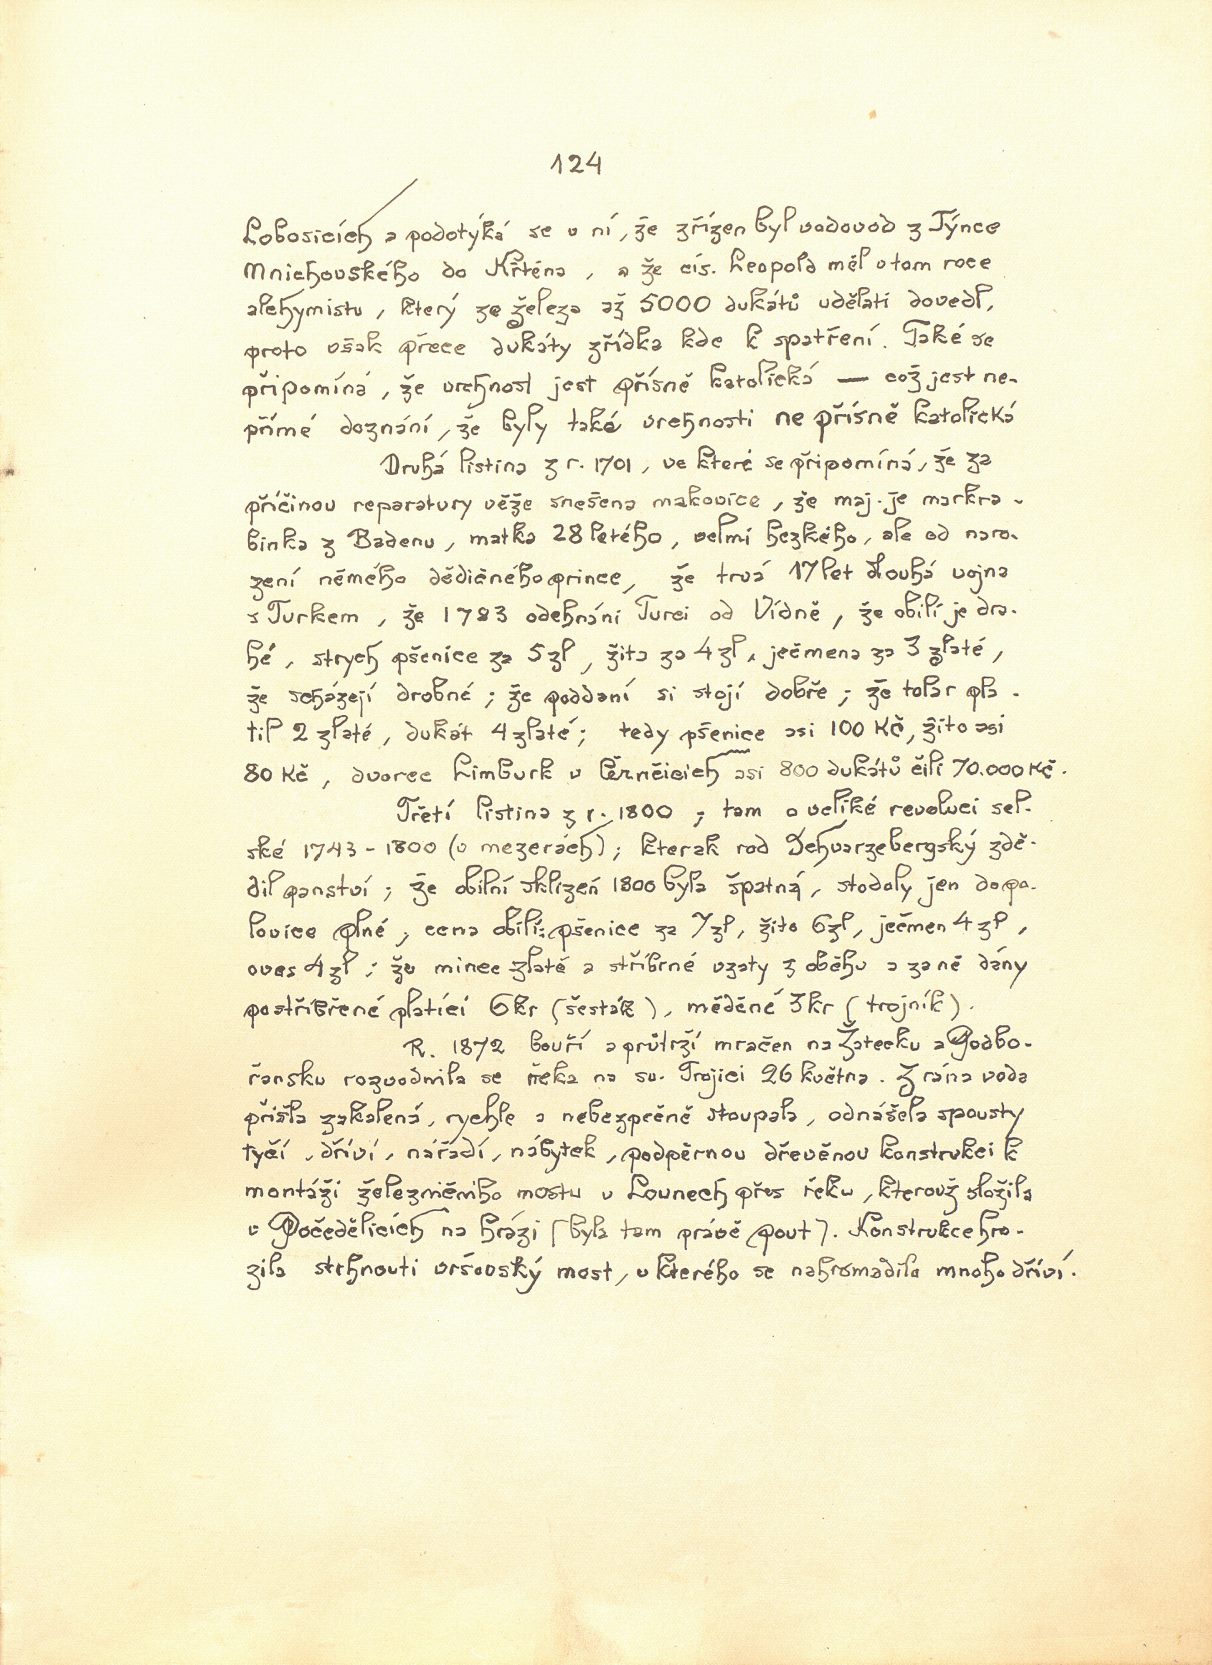 124
Lobosicích a podotýká se v ní, že zřízen byl vodovod z Týnce
Mnichovského do Křténa, a že cís. Leopold měl v tom roce
alchymistu, který ze železa až 5000 dukátů udělati dovedl,
proto však přece dukáty zřídka kde k spatření. Také se
připomíná, že vrchnost jest přísně katolická — což jest ne-
přímé doznání, že byly také vrchnosti ne přísně katolická
Druhá listina z r. 1701, ve které se připomíná, že za
příčinou reparatury věže snešena makovice, že maj. je markra-
binka z Badenu, matka 28letého, velmi hezkého, ale od naro-
zení němého dědičného prince, že trvá 17 let dlouhá vojna
s Turkem, že 1783 odehnáni Turci od Vídně, že obilí je dra-
hé, strych pšenice za 5zl, žita za 4zl, ječmena za 3 zlaté,
že scházejí drobné; že poddaní si stojí dobře; že tolar pla-
til 2 zlaté, dukát 4 zlaté; tedy pšenice asi 100 Kč, žito asi
80 Kč, dvorec Limburk v Černčicích asi 800 dukátů čili 70.000 Kč.
Třetí listina z r. 1800; tam o veliké revoluci sel-
ské 1743-1800 (v mezerách); kterak rod Schvarzebergský zdě-
dil panství; že obilní sklizeň 1800 byla špatná, stodoly jen do po-
lovice plné, cena obilí: pšenice za 7zl, žito 6zl, ječmen 4zl,
oves 4zl; že mince zlaté a stříbrné vzaty z oběhu a za ně dány
postříbřené platící 6kr (šesták), měděné 3kr (trojník).
R. 1872 bouří a průtrží mračen na Žatecku a Podbo-
řansku rozvodnila se řeka na sv. Trojici 26 května. Z rána voda
přišla zakalená, rychle a nebezpečně stoupala, odnášela spousty
tyčí, dříví, nářadí, nábytek, podpěrnou dřevěnou konstrukci k
montáži železničního mostu v Lounech přes řeku, kterouž složila
v Počedělicích na hrázi (byla tam právě pout). Konstrukce hro-
zila strhnouti vršovský most, u kterého se nahromadilo mnoho dříví.